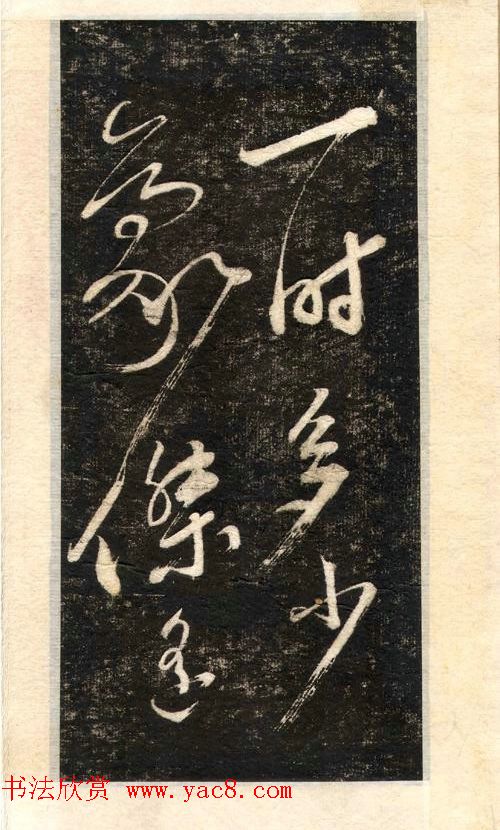 一时多少
豪杰遥
书法欣赏 www.yac8.com